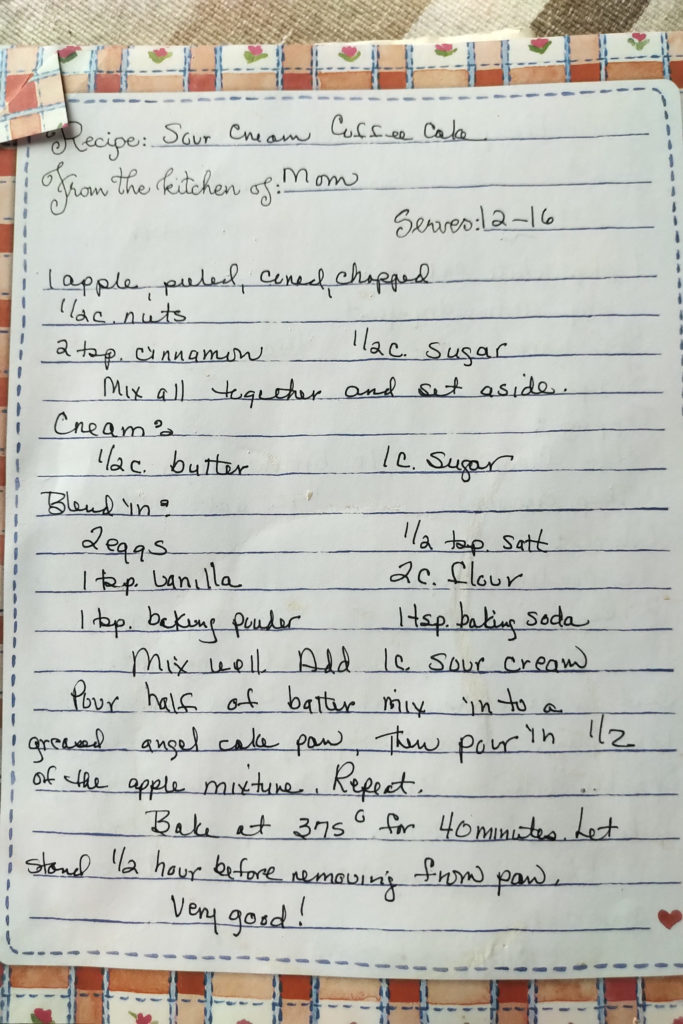 Recipe: Sour Cream Coffee Cake
From the kitchen of: Mom
Serves: 12-16
1 apple, peeled, cored, chopped
1/2 c. nuts
2 tsp. cinnamon 1/2 c. sugar
Mix all together and set aside.
Cream:
1/2 c. butter 1 c. sugar
Blend in:
2 eggs 1/2 tsp. salt
1 tsp. vanilla 2 c. flour
1 tsp. baking powder 1 tsp. baking soda
Mix well Add 1c. sour cream
Pour half of batter mix in to a
greased angel cake pan, Then pour in 1/2
of the apple mixture. Repeat.
Bake at 375° for 40 minutes. Let
stand 1/2 hour before removing from pan.
Very good!